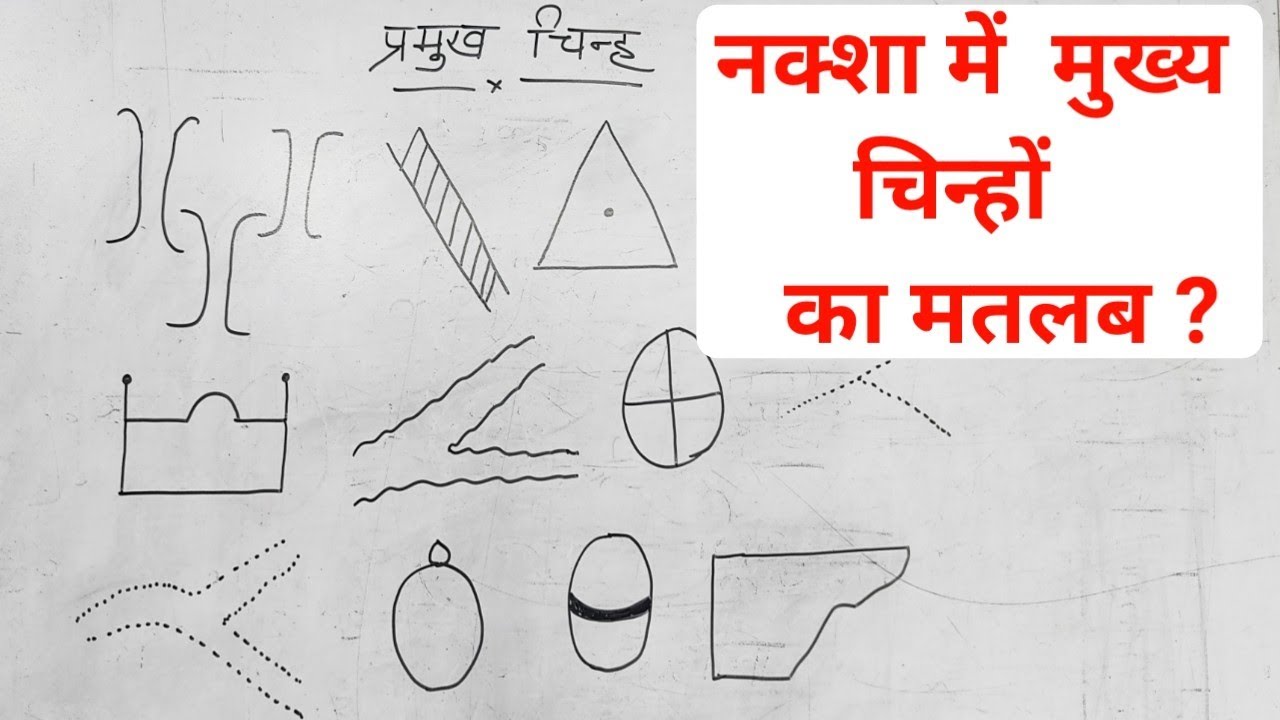 प्रमुख चिन्ह
नक्शा में मुख्य
चिन्हों
का मतलब ?